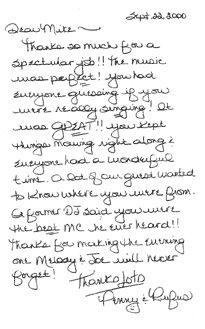 Sept 22, 2000
Dear Mike ~
Thanks so much for a
spectular job!! The music
was perfect! you had
everyone guessing if you
were really singing! It
was GREAT!! you kept
things moving right along &
everyone had a wonderful
time. A lot of our guest wanted
to know where you were from.
A former DJ said you were
the best MC he ever heard!!
Thanks for making the evening
one Melody & Joe will never
forget!
Thanks lots
Penny & Rufus